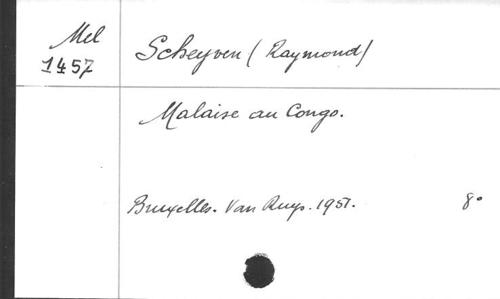 Mel
1457
Scheyven (Raymond)
Malaise au Congo.
Bruxelles. Van Ruys. 1957. 8°